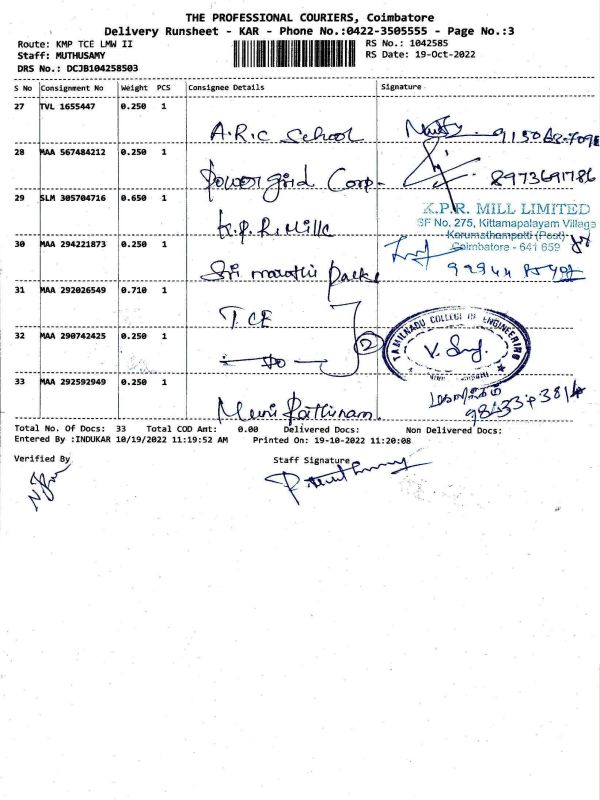 THE PROFESSIONAL COURIERS, Coimbatore
Delivery Runsheet - KAR - Phone No.:0422-3505555 - Page No.:3
Route: KMP TCE LMW II
RS No.: 1042585
Staff: MUTHUSAMY
RS Date: 19-Oct-2022
DRS No.: DCJB104258503
S No Consignment No Weight PCS Consignee Details Signature
27 TVL 1655447 0.250 1
A.R.C School
28 MAA 567484212 0.250 1
Powergrid Corp-
8973691786
29 SLM 305704716 0.650 1
K.P.R. Mills
K.P.R. MILL LIMITED
SF No. 275, Kittamapalayam Village
Karumathampatti (Post)
Coimbatore - 641 659
30 MAA 294221873 0.250 1
Sri
31 MAA 292026549 0.710 1
TCE
32 MAA 290742425 0.250 1
- Do -
2
TAMILNADU COLLEGE OF ENGINEERING
33 MAA 292592949 0.250 1
Total No. Of Docs: 33 Total COD Amt: 0.00 Delivered Docs: Non Delivered Docs:
Entered By :INDUKAR 10/19/2022 11:19:52 AM Printed On: 19-10-2022 11:20:08
Verified By Staff Signature